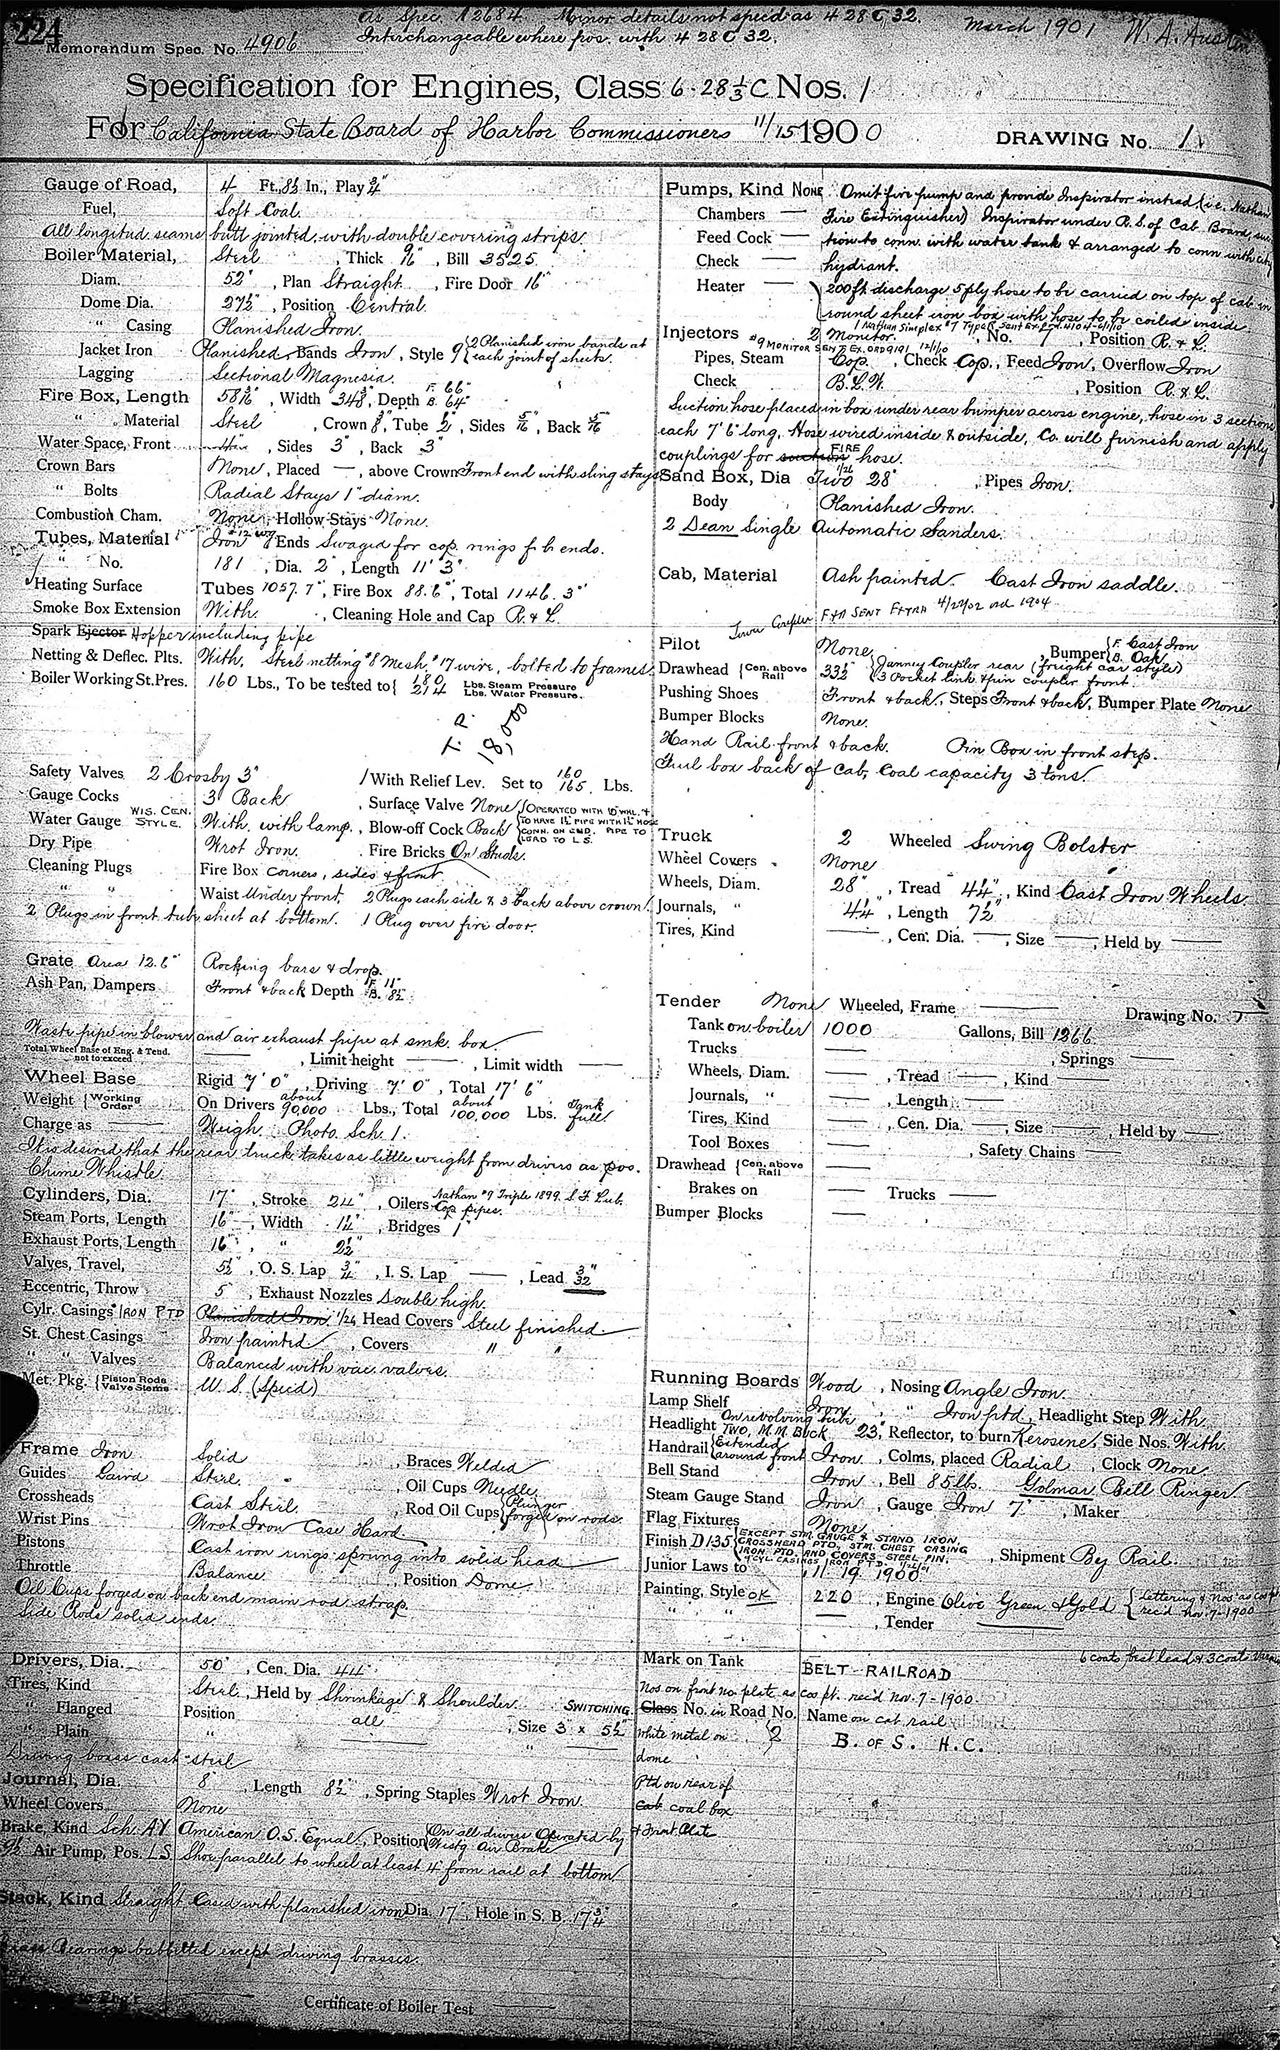 224
As Spec. 12684. Minor details not spec'd as 4 28 C 32.
Memorandum Spec. No. 4906 Interchangeable where pos. with 4 28 C 32.
March 1901 W. A. Austin
Specification for Engines, Class 6-28 1/3 C Nos. 1
For California State Board of Harbor Commissioners 11/15 1900
DRAWING No. 1
Gauge of Road, 4 Ft., 8½ In., Play ¾"
Fuel, Soft Coal.
All longitud. seams butt jointed, with double covering strips
Boiler Material, Steel, Thick 9/16", Bill 3525
Diam. 52", Plan Straight, Fire Door 16"
Dome Dia. 27½", Position Central.
" Casing Planished Iron.
Jacket Iron Planished, Bands Iron, Style 9 {2 Planished iron bands at each joint of sheets.
Lagging Sectional Magnesia.
Fire Box, Length 58 3/16", Width 34 3/8", Depth F. 66" B. 64"
" Material Steel, Crown 3/8", Tube ½", Sides 5/16", Back 5/16"
Water Space, Front 4", Sides 3", Back 3"
Crown Bars None, Placed —, above Crown Front end with sling stays
" Bolts Radial Stays 1" diam.
Combustion Cham. None, Hollow Stays None.
Tubes, Material Iron #12 W.G., Ends Swaged for cop. rings f. b. ends.
" No. 181, Dia. 2", Length 11' 3"
Heating Surface Tubes 1057.7", Fire Box 88.6", Total 1146.3"
Smoke Box Extension With., Cleaning Hole and Cap R. & L.
Spark Ejector Hopper including pipe
Netting & Deflec. Plts. With. Steel netting #8 Mesh, #17 wire, bolted to frames.
Boiler Working St. Pres. 160 Lbs., To be tested to { 180 Lbs. Steam Pressure 214 Lbs. Water Pressure.
T. P. 18,000
Safety Valves 2 Crosby 3" 1 With Relief Lev. Set to 160 165 Lbs.
Gauge Cocks 3 Back, Surface Valve None
Water Gauge WIS. CEN. STYLE. With, with lamp., Blow-off Cock Back {OPERATED WITH TO HAVE 1½" PIPE WITH 1½" HOSE CONN. ON END. PIPE TO LEAD TO L.S.
Dry Pipe Wrot Iron. Fire Bricks On Studs.
Cleaning Plugs Fire Box corners, sides & front
" " Waist Under front, 2 Plugs each side & 3 back above crown.
2 Plugs in front tube sheet at bottom. 1 Plug over fire door.
Grate Area 12.6" Rocking bars & drop.
Ash Pan, Dampers Front & back Depth F. 11" B. 8½"
Waste pipe in blower and air exhaust pipe at smk. box
Total Wheel Base of Eng. & Tend. not to exceed —, Limit height —, Limit width —
Wheel Base Rigid 7' 0", Driving 7' 0", Total 17' 6"
Weight {Working Order On Drivers about 90,000 Lbs., Total about 100,000 Lbs. Tank full.
Charge as — Weigh. Photo. Sch. 1.
It is desired that the rear truck takes as little weight from drivers as pos.
Chime Whistle.
Cylinders, Dia. 17", Stroke 24", Oilers Nathan #9 Triple 1899. S. F. Lub. Cop pipes.
Steam Ports, Length 16", Width 1¼", Bridges 1"
Exhaust Ports, Length 16", " 2½"
Valves, Travel, 5½", O. S. Lap ¾", I. S. Lap —, Lead 3/32"
Eccentric, Throw 5, Exhaust Nozzles Double high.
Cylr. Casings IRON PTD Planished Iron 1/26 Head Covers Steel finished
St. Chest Casings Iron painted, Covers " "
" " Valves Balanced with vac. valves.
Met. Pkg. {Piston Rods Valve Stems W. S. (Spec'd)
Frame Iron Solid, Braces Welded
Guides Laird Steel., Oil Cups Needle
Crossheads Cast Steel, Rod Oil Cups {Plunger forged on rods.
Wrist Pins Wrot Iron Case Hard.
Pistons Cast iron rings sprung into solid head
Throttle Balance, Position Dome
Oil Cups forged on back end main rod strap.
Side Rods solid ends.
Drivers, Dia. 50", Cen. Dia. 44"
Tires, Kind Steel, Held by Shrinkage & Shoulder. SWITCHING
" Flanged Position all, Size 3" x 5½"
" Plain " "
Driving boxes cast steel
Journal, Dia. 8", Length 8½", Spring Staples Wrot Iron.
Wheel Covers None
Brake, Kind Sch. AY American O.S. Equal., Position {On all drivers Operated by Westg. Air Brake
9½ Air Pump, Pos. L.S. Shoe parallel to wheel at least 4" from rail at bottom
Stack, Kind Straight, Cased with planished iron Dia. 17", Hole in S. B. 17¾"
Bearings babbitted except driving brasses.
Certificate of Boiler Test
Pumps, Kind NONE Omit fire pump and provide Inspirator instead (i.e. Nathan
Chambers — Fire Extinguisher) Inspirator under R.S. of Cab Board, suc-
Feed Cock — tion to conn. with water tank & arranged to conn with city
Check — hydrant.
Heater — {200 ft. discharge 5 ply hose to be carried on top of cab in
round sheet iron box with hose to be coiled inside.
1 Nathan Simplex #7 Type R Sent Ex. Ord. 4104-6/1/10
Injectors 2 Monitor., No. 7, Position R. & L.
#9 MONITOR SENT EX. ORD 9191 12/1/10
Pipes, Steam Cop., Check Cop., Feed Iron, Overflow Iron
Check B.L.W., Position R. & L.
Suction hose placed in box under rear bumper across engine, hose in 3 sections
each 7' 6" long, Hose wired inside & outside, Co. will furnish and apply
couplings for suction FIRE hose.
Sand Box, Dia Two 1/26 28", Pipes Iron.
Body Planished Iron.
2 Dean Single Automatic Sanders.
Cab, Material Ash painted. Cast Iron saddle.
Tower Coupler F & A SENT EXTRA 4/29/02 ord 1904
Pilot None, Bumper {F. Cast Iron B. Oak
Drawhead {Cen. above Rail 33½" {Janney Coupler rear (freight car style) {3 Pocket link & pin coupler front.
Pushing Shoes Front & back., Steps Front & back, Bumper Plate None
Bumper Blocks None.
Hand Rail front & back. Pin Box in front step.
Fuel box back of cab, Coal capacity 3 tons.
Truck 2 Wheeled Swing Bolster
Wheel Covers None
Wheels, Diam. 28", Tread 4¼", Kind Cast Iron Wheels
Journals, " 4¼", Length 7½"
Tires, Kind —, Cen. Dia. —, Size —, Held by —
Tender None Wheeled, Frame — Drawing No.
Tank on boiler 1000 Gallons, Bill 1266
Trucks —, Springs —
Wheels, Diam. —, Tread —, Kind —
Journals, " —, Length —
Tires, Kind —, Cen. Dia. —, Size —, Held by —
Tool Boxes —, Safety Chains —
Drawhead {Cen. above Rail —
Brakes on — Trucks —
Bumper Blocks —
Running Boards Wood, Nosing Angle Iron.
Lamp Shelf Iron, " Iron ptd, Headlight Step With
Headlight On revolving tube TWO, M.M. BUCK 23", Reflector, to burn Kerosene, Side Nos. With
Handrail {Extended around front Iron, Colms, placed Radial, Clock None
Bell Stand Iron, Bell 85 lbs. Golmar Bell Ringer
Steam Gauge Stand Iron, Gauge Iron 7", Maker
Flag Fixtures None
Finish D135 {EXCEPT STM. GAUGE & STAND IRON, CROSSHEAD PTD, STM. CHEST CASING IRON PTD. AND COVERS STEEL FIN. CYL CASINGS IRON PTD., Shipment By Rail.
Junior Laws to, 11. 19. 1900"
Painting, Style OK 220, Engine Olive Green & Gold {Lettering & Nos as co's pt. rec'd Nov. 7-1900
" " —, Tender —
6 coats first lead & 3 coats Varnish
Mark on Tank BELT RAILROAD
Nos on front no. plate as co's pt. rec'd Nov. 7-1900
Class No. in Road No. Name on cab rail
White metal on dome } 2 B. OF S. H. C.
Ptd on rear of
Cab coal box
& Front Plate